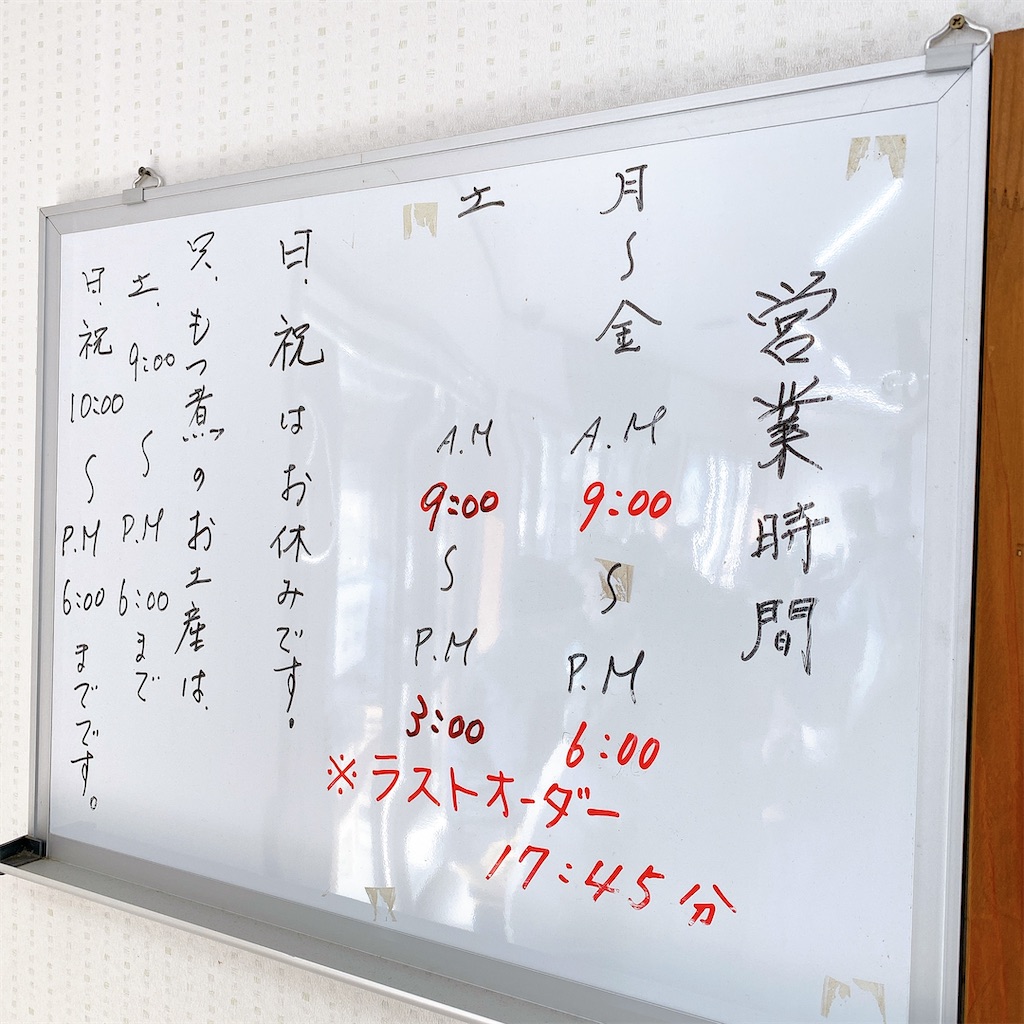 営業時間
月～金 A.M 9:00 ～ P.M 6:00
土 A.M 9:00 ～ P.M 3:00
※ラストオーダー
17:45分
日.祝はお休みです.
只.もつ煮のお土産は.
土.9:00～P.M6:00まで
日.祝10:00～P.M6:00までです。